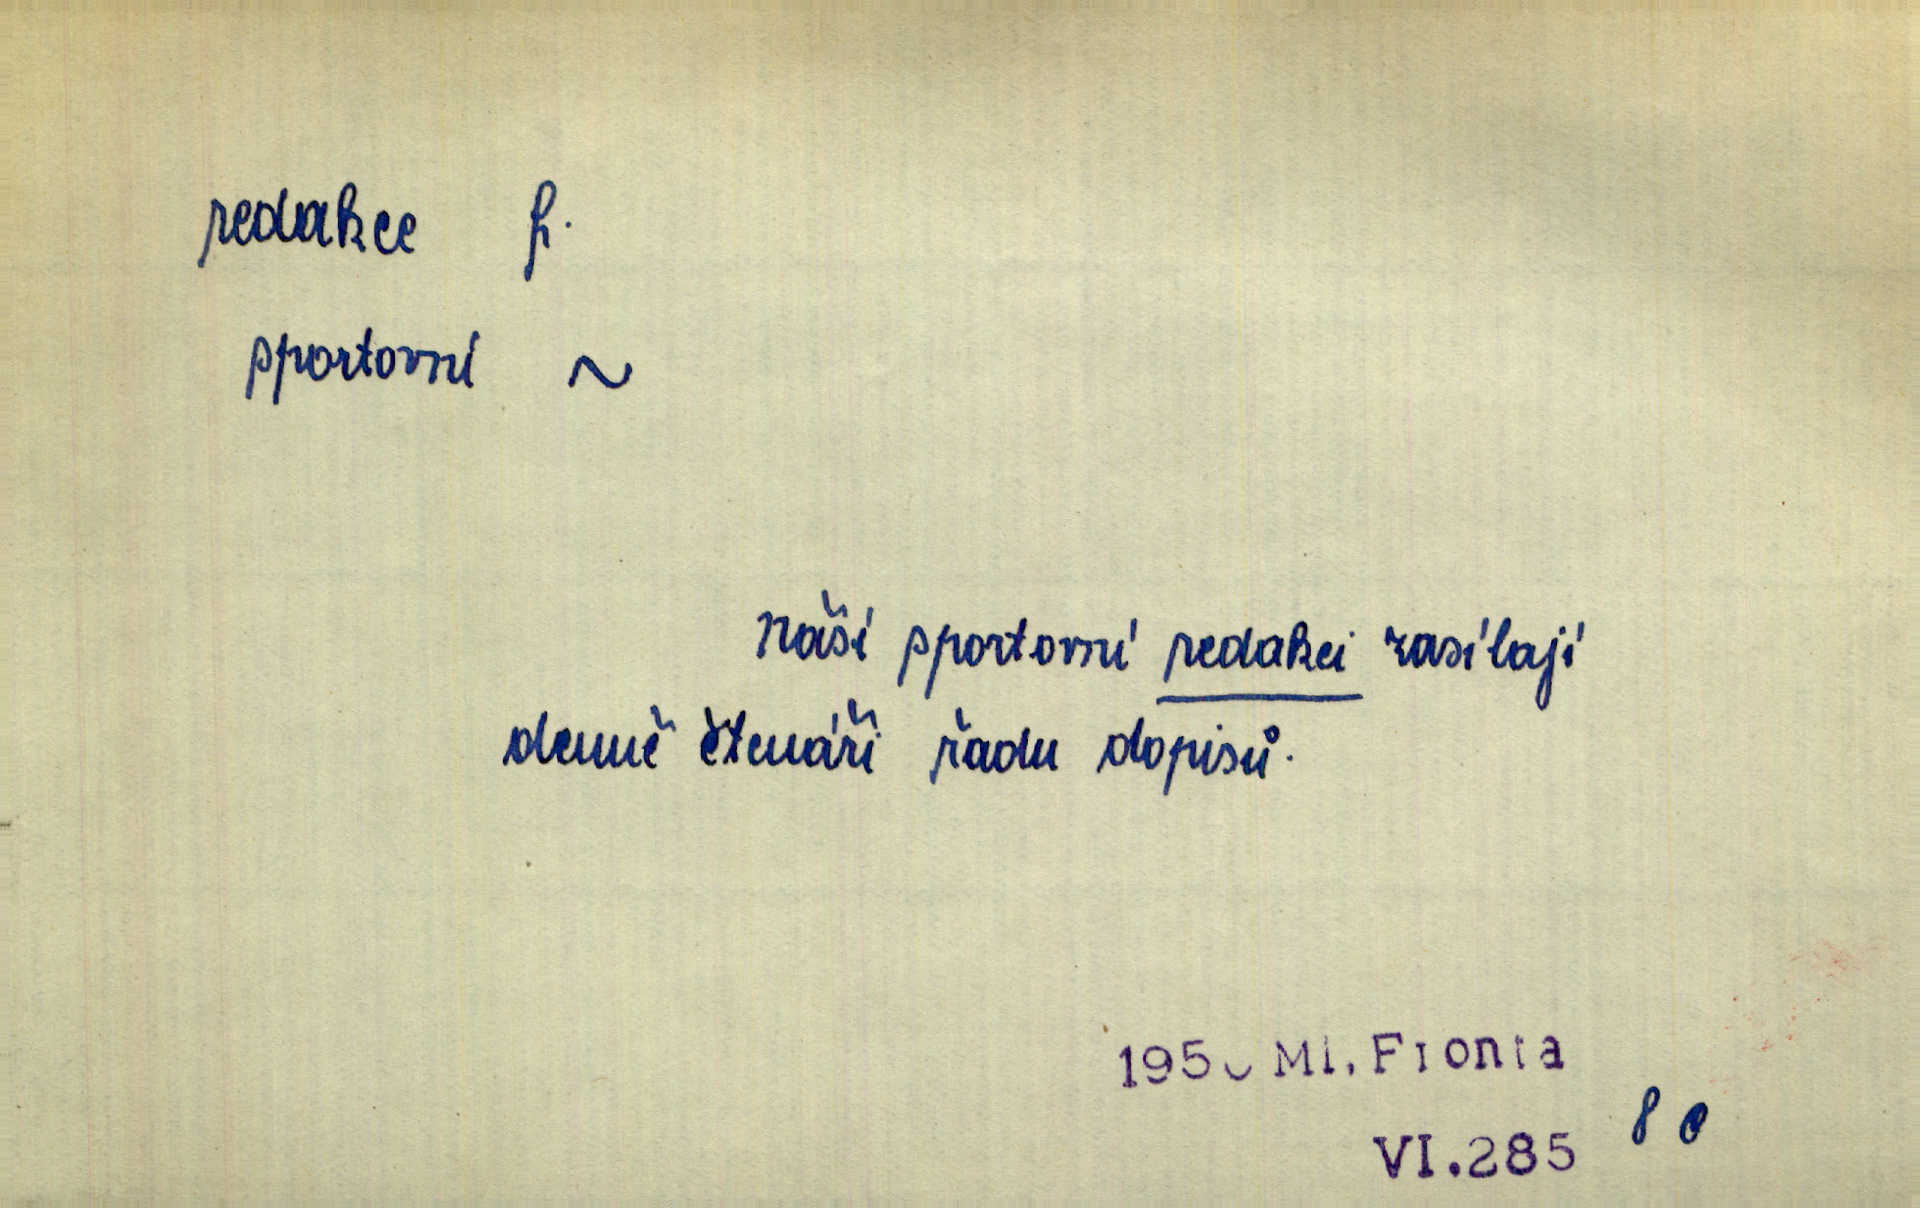 redakce f.
sportovní ~
Naší sportovní redakci zasílají
denně čtenáři řadu dopisů.
Ml. Fronta
VI.285 80